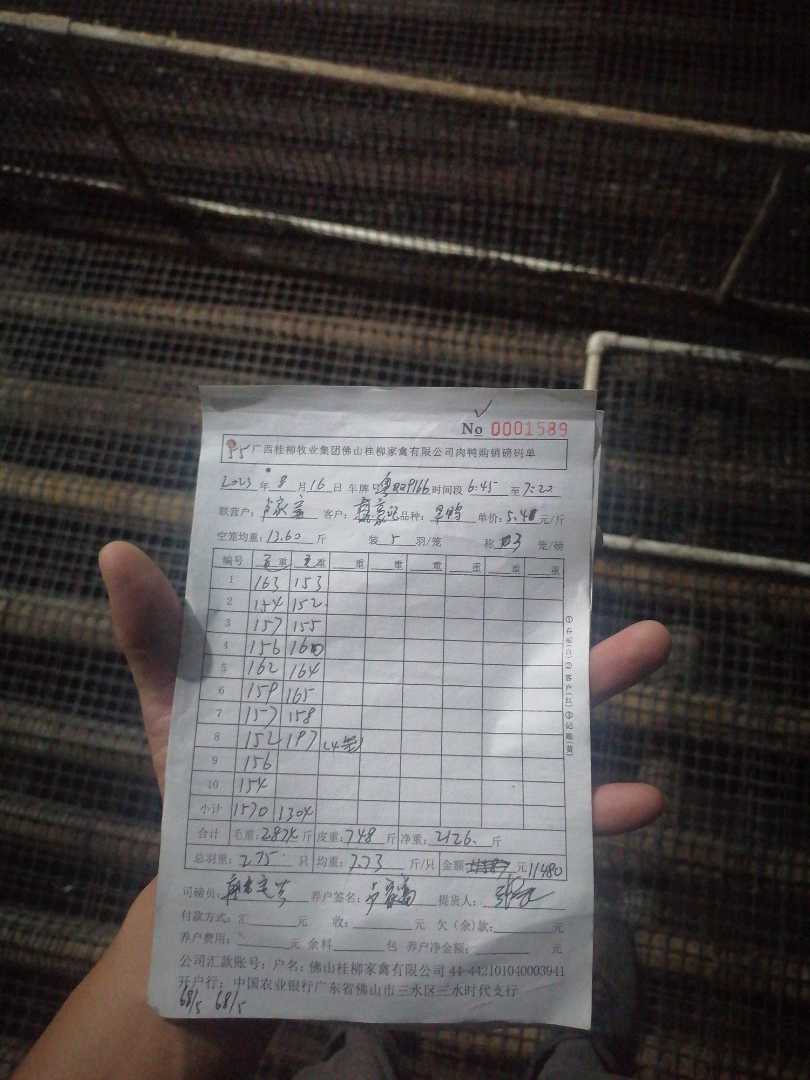 No 0001589
广西桂柳牧业集团佛山桂柳家禽有限公司肉鸭购销磅码单
2023年8月16日 车牌 9166 时间段 6:45 至 7:20
联营户: 客户: 品种: 单价:5.4 元/斤
空笼均重:13.60斤 装5羽/笼 称 3 笼/磅
编号 毛重 毛重 重 重 重 重 重 重
1 163 153
2 154 152
3 157 155
4 156 160
5 162 164
6 159 165
7 157 158
8 152 197 (4笼)
9 156
10 154
小计 1570 1304
合计 毛重:2874斤 皮重:748斤 净重:2126斤
总羽重:275只 均重:7.73斤/只 金额 元 11480
司磅员: 养户签名: 提货人:
付款方式: 元 收: 元 欠(余)款: 元
养户费用: 元 余料 包 养户净金额: 元
公司汇款账号:户名:佛山桂柳家禽有限公司 44-442101040003941
开户行:中国农业银行广东省佛山市三水区三水时代支行
68/5 68/5